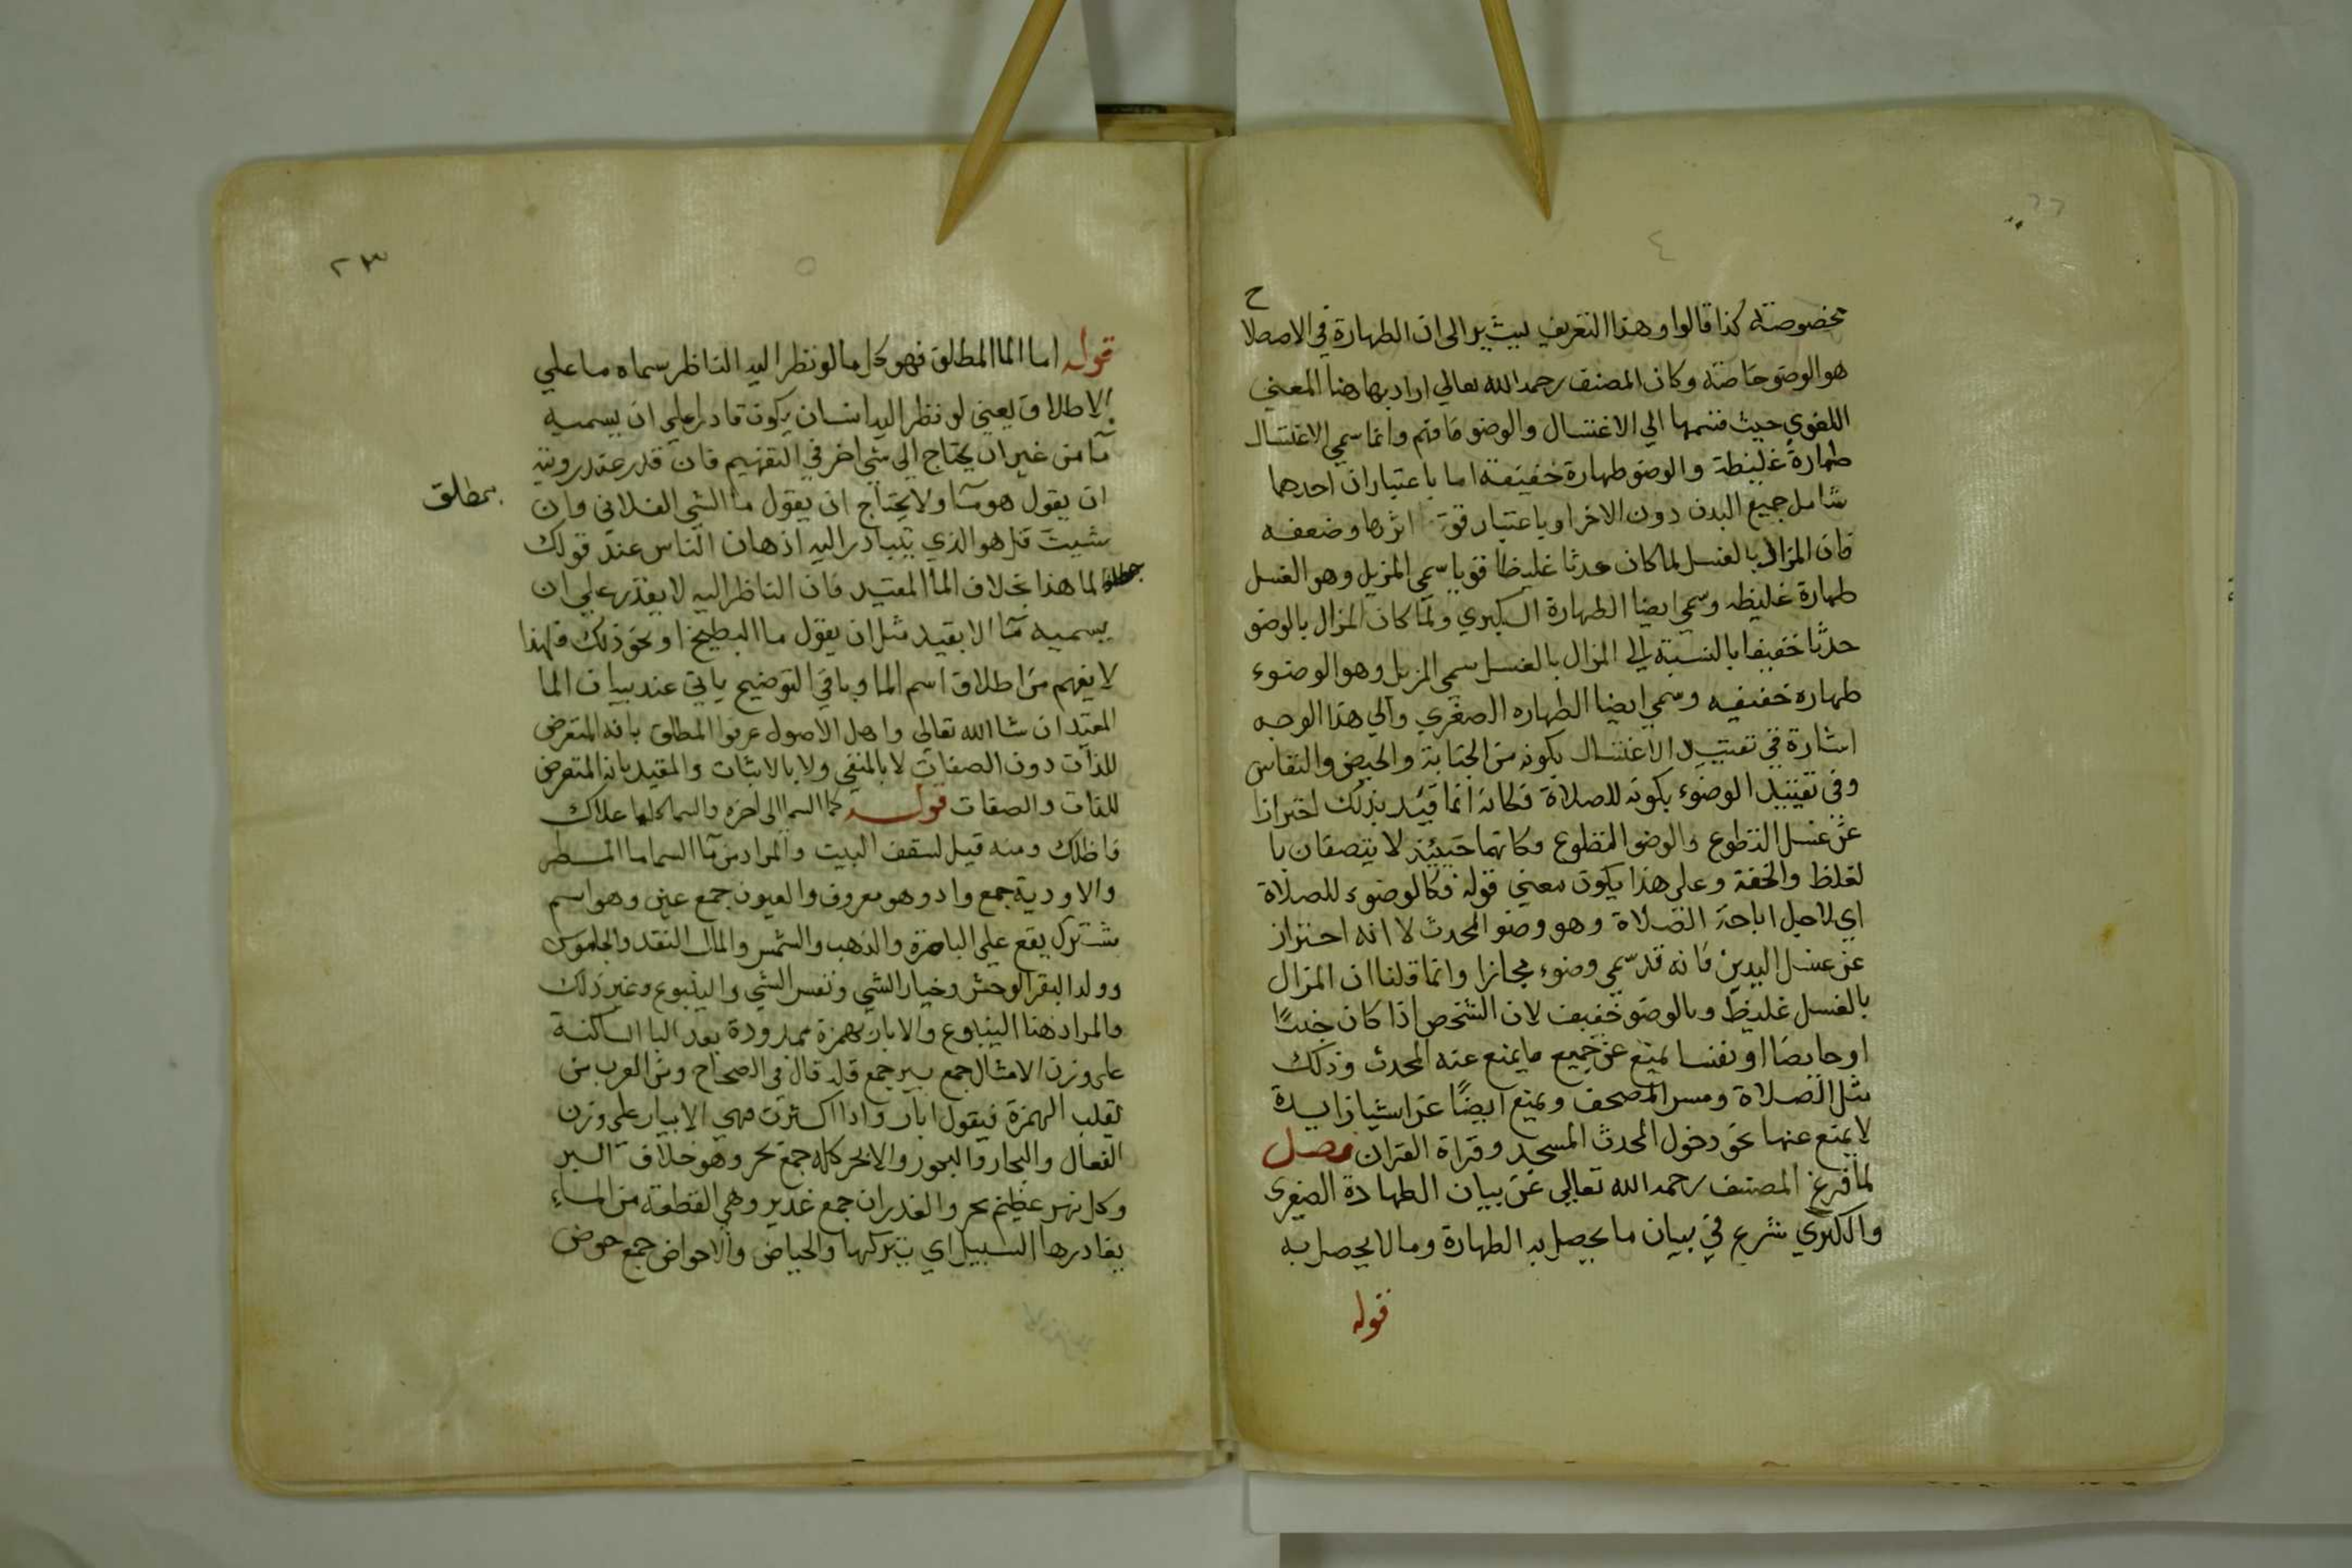 ٢٢
٤
ح
مخصوصة كذا قالوا وهذا التعريف يشير الى ان الطهارة في الاصطلا
هو الوضو خاصة وكان المصنف رحمه الله تعالي اراد بها هنا المعني
اللغوي حيث قسمها الي الاغتسال والوضو فافهم وانما سمي الاغتسال
طهارة غليظة والوضو طهارة خفيفة اما باعتبار ان احدهما
شامل جميع البدن دون الاخر او باعتبار قوة اثرها وضعفه
فان المزال بالغسل لما كان حدثا غليظا قويا سمي المزيل وهو الغسل
طهارة غليظه وسمي ايضا الطهارة الكبري ولما كان المزال بالوضو
حدثا خفيفا بالنسبة الى المزال بالغسل سمي المزيل وهو الوضوء
طهاره خفيفه وسمي ايضا الطهاره الصغري والي هذا الوجه
اشارة في تقييد الاغتسال بكونه من الجنابة والحيض والنفاس
وفي تقييد الوضوء بكونه للصلاة فكانه انما قيد بذلك احترازا
عن غسل التطوع والوضو التطوع وكانهما حينئذ لا يتصفان با
لغلظ والخفة وعلى هذا يكون معني قوله فكالوضوء للصلاة
اي لاجل اباحة الصلاة وهو وضو المحدث لا انه احتراز
عن غسل اليدين فانه قد سمي وضوء مجازا وانما قلنا ان المزال
بالغسل غليظ وبالوضو خفيف لان الشخص اذا كان جنبًا
او حايضا او نفسا يمنع عن جميع ما يمنع عنه المحدث وذلك
مثل الصلاة ومس المصحف ويمنع ايضًا عن اشيا زايدة
لا يمنع عنها نحو دخول المحدث المسجد وقراة القران فصل
لما فرغ المصنف رحمه الله تعالي عن بيان الطهارة الصغرى
والكبري شرع في بيان ما يحصل به الطهارة وما لا يحصل به
قوله
٢٣
٥
قوله اما الما المطلق فهو كل ما لو نظر اليه الناظر سماه ما علي
الاطلاق يعني لو نظر اليه انسان يكون قادرا علي ان يسميه
مآ من غير ان يحتاج الي شي اخر في التفهيم فان قدر عند رويته
ان يقول هو مآ ولا يحتاج ان يقول ما الشي الفلاني وان
بمطلق
شيت قل هو الذي يتبادر اليه اذهان الناس عند قولك
لما هذا بخلاف الما المقيد فان الناظر اليه لا يقدر علي ان
يسميه مآ الا بقيد مثل ان يقول ما البطيخ او نحو ذلك فلهذا
لا يفهم من اطلاق اسم الما وباقي التوضيح ياتي عند بيان الما
المقيد ان شا الله تعالي واهل الاصول عرفوا المطلق بانه المتعرض
للذات دون الصفات لا بالنفي ولا بالاثبات والمقيد بانه المتعرض
للذات والصفات قوله كما السما الى اخره والسما كلما علاك
فاظلك ومنه قيل لسقف البيت والمراد من مآ السما ما المطر
والاودية جمع واد وهو معروف والعيون جمع عين وهو اسم
مشترك يقع علي الباصرة والذهب والشمس والمال النقد والجاموس
وولد البقر الوحش وخيار الشي ونفس الشي والينبوع وغير ذلك
والمراد هنا الينبوع والابار بهمزة ممدودة بعد البا الساكنة
على وزن الامثال جمع بير جمع قلة قال في الصحاح ومن العرب من
يقلب الهمزة فيقول ابار واذا اكثرت فهي الابيار علي وزن
الفعال والبحار والبحور والابحر كله جمع بحر وهو خلاف البر
وكل نهر عظيم بحر والغدران جمع غدير وهي القطعة من الماء
يغادرها السيل اي يتركها والحياض والاحواض جمع حوض